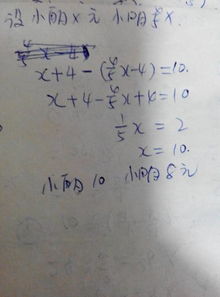 设小丽x元 小明4/5x.
x+4-(4/5x-4)=10.
x+4-4/5x+4=10
1/5x=2
x=10.
小丽10 小明8元